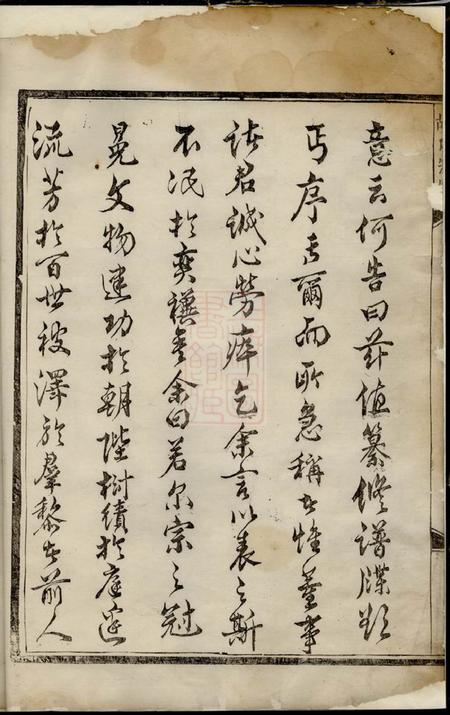 意云何告曰茲值纂修譜牒欲
丐序者爾而所急稱者惟董事
諸君誠心勞瘁乞余言以表之斯
不泯於奕禩矣余曰若尔宗之冠
冕文物建功於朝陛樹績於庭
流芳於百世被澤於羣黎者前人